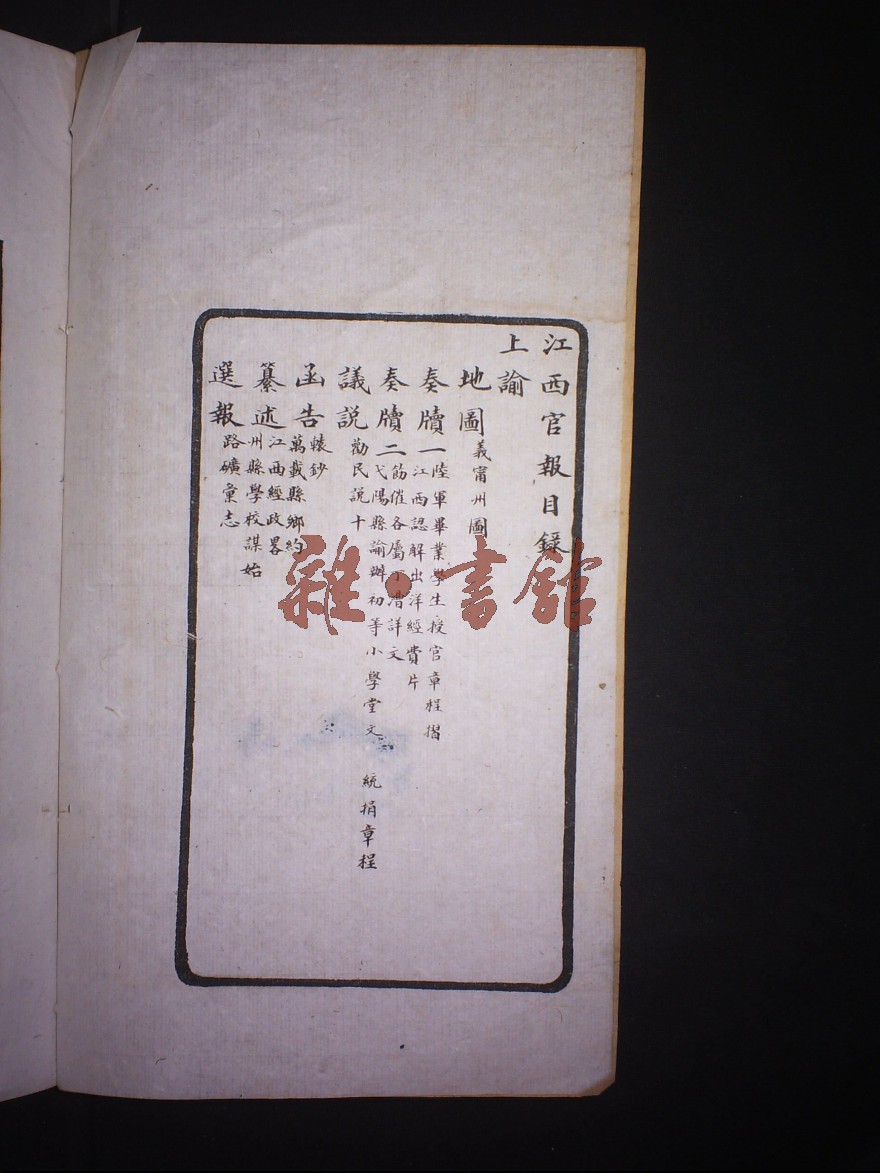 江西官報目錄
上諭
地圖 義甯州圖
奏牘一 陸軍畢業學生授官章程摺
江西認解出洋經費片
奏牘二 飭催各屬丁漕詳文
弋陽縣諭辦初等小學堂文 統捐章程
議説 勸民説十
函告 轅鈔
萬載縣鄉約
纂述 江西經政畧
州縣學校謀始
選報 路礦彙志
雜·書館